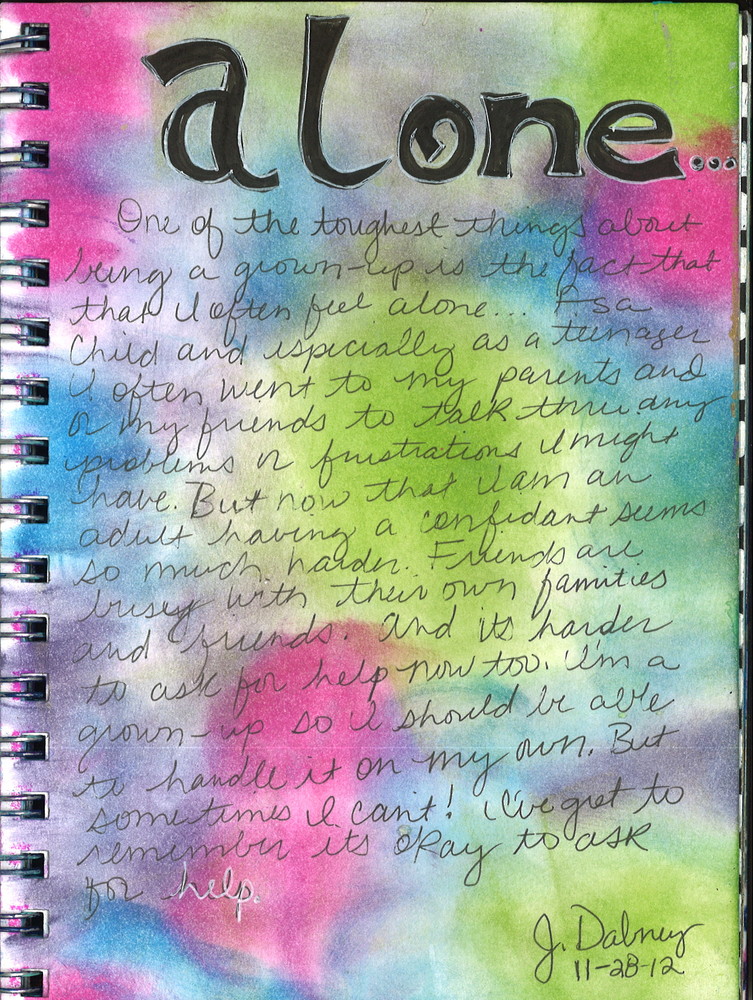 alone...
One of the toughest things about
being a grown-up is the fact that
that I often feel alone... As a
Child and especially as a teenager
I often went to my parents and
or my friends to talk thru any
problems or frustrations I might
have. But now that I am an
adult having a confidant seems
so much harder. Friends are
busy with their own families
and friends. And its harder
to ask for help now too. I'm a
grown-up so I should be able
to handle it on my own. But
sometimes I can't! I've got to
remember its okay to ask
for help.
J. Dabney
11-28-12